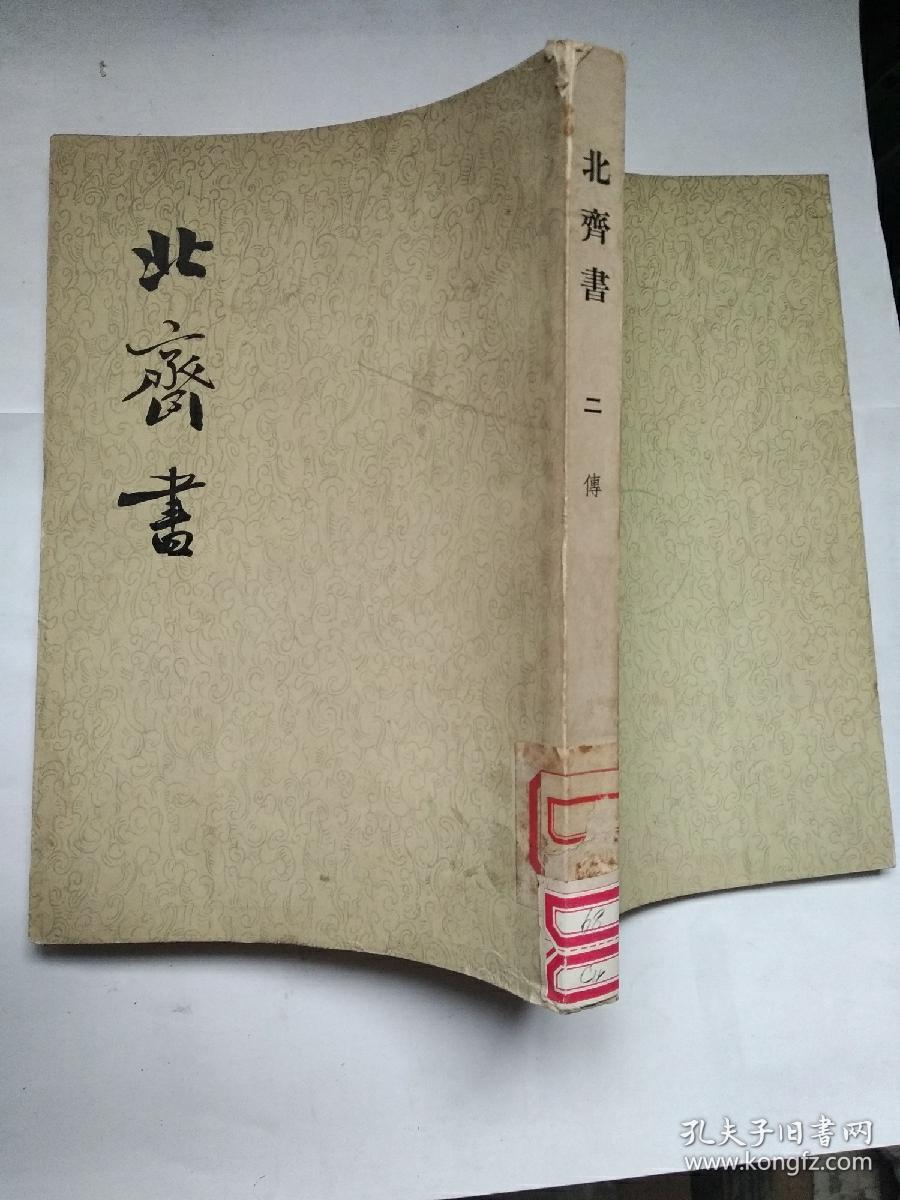 北齊書
北齊書 二 傳
孔夫子旧书网
www.kongfz.com